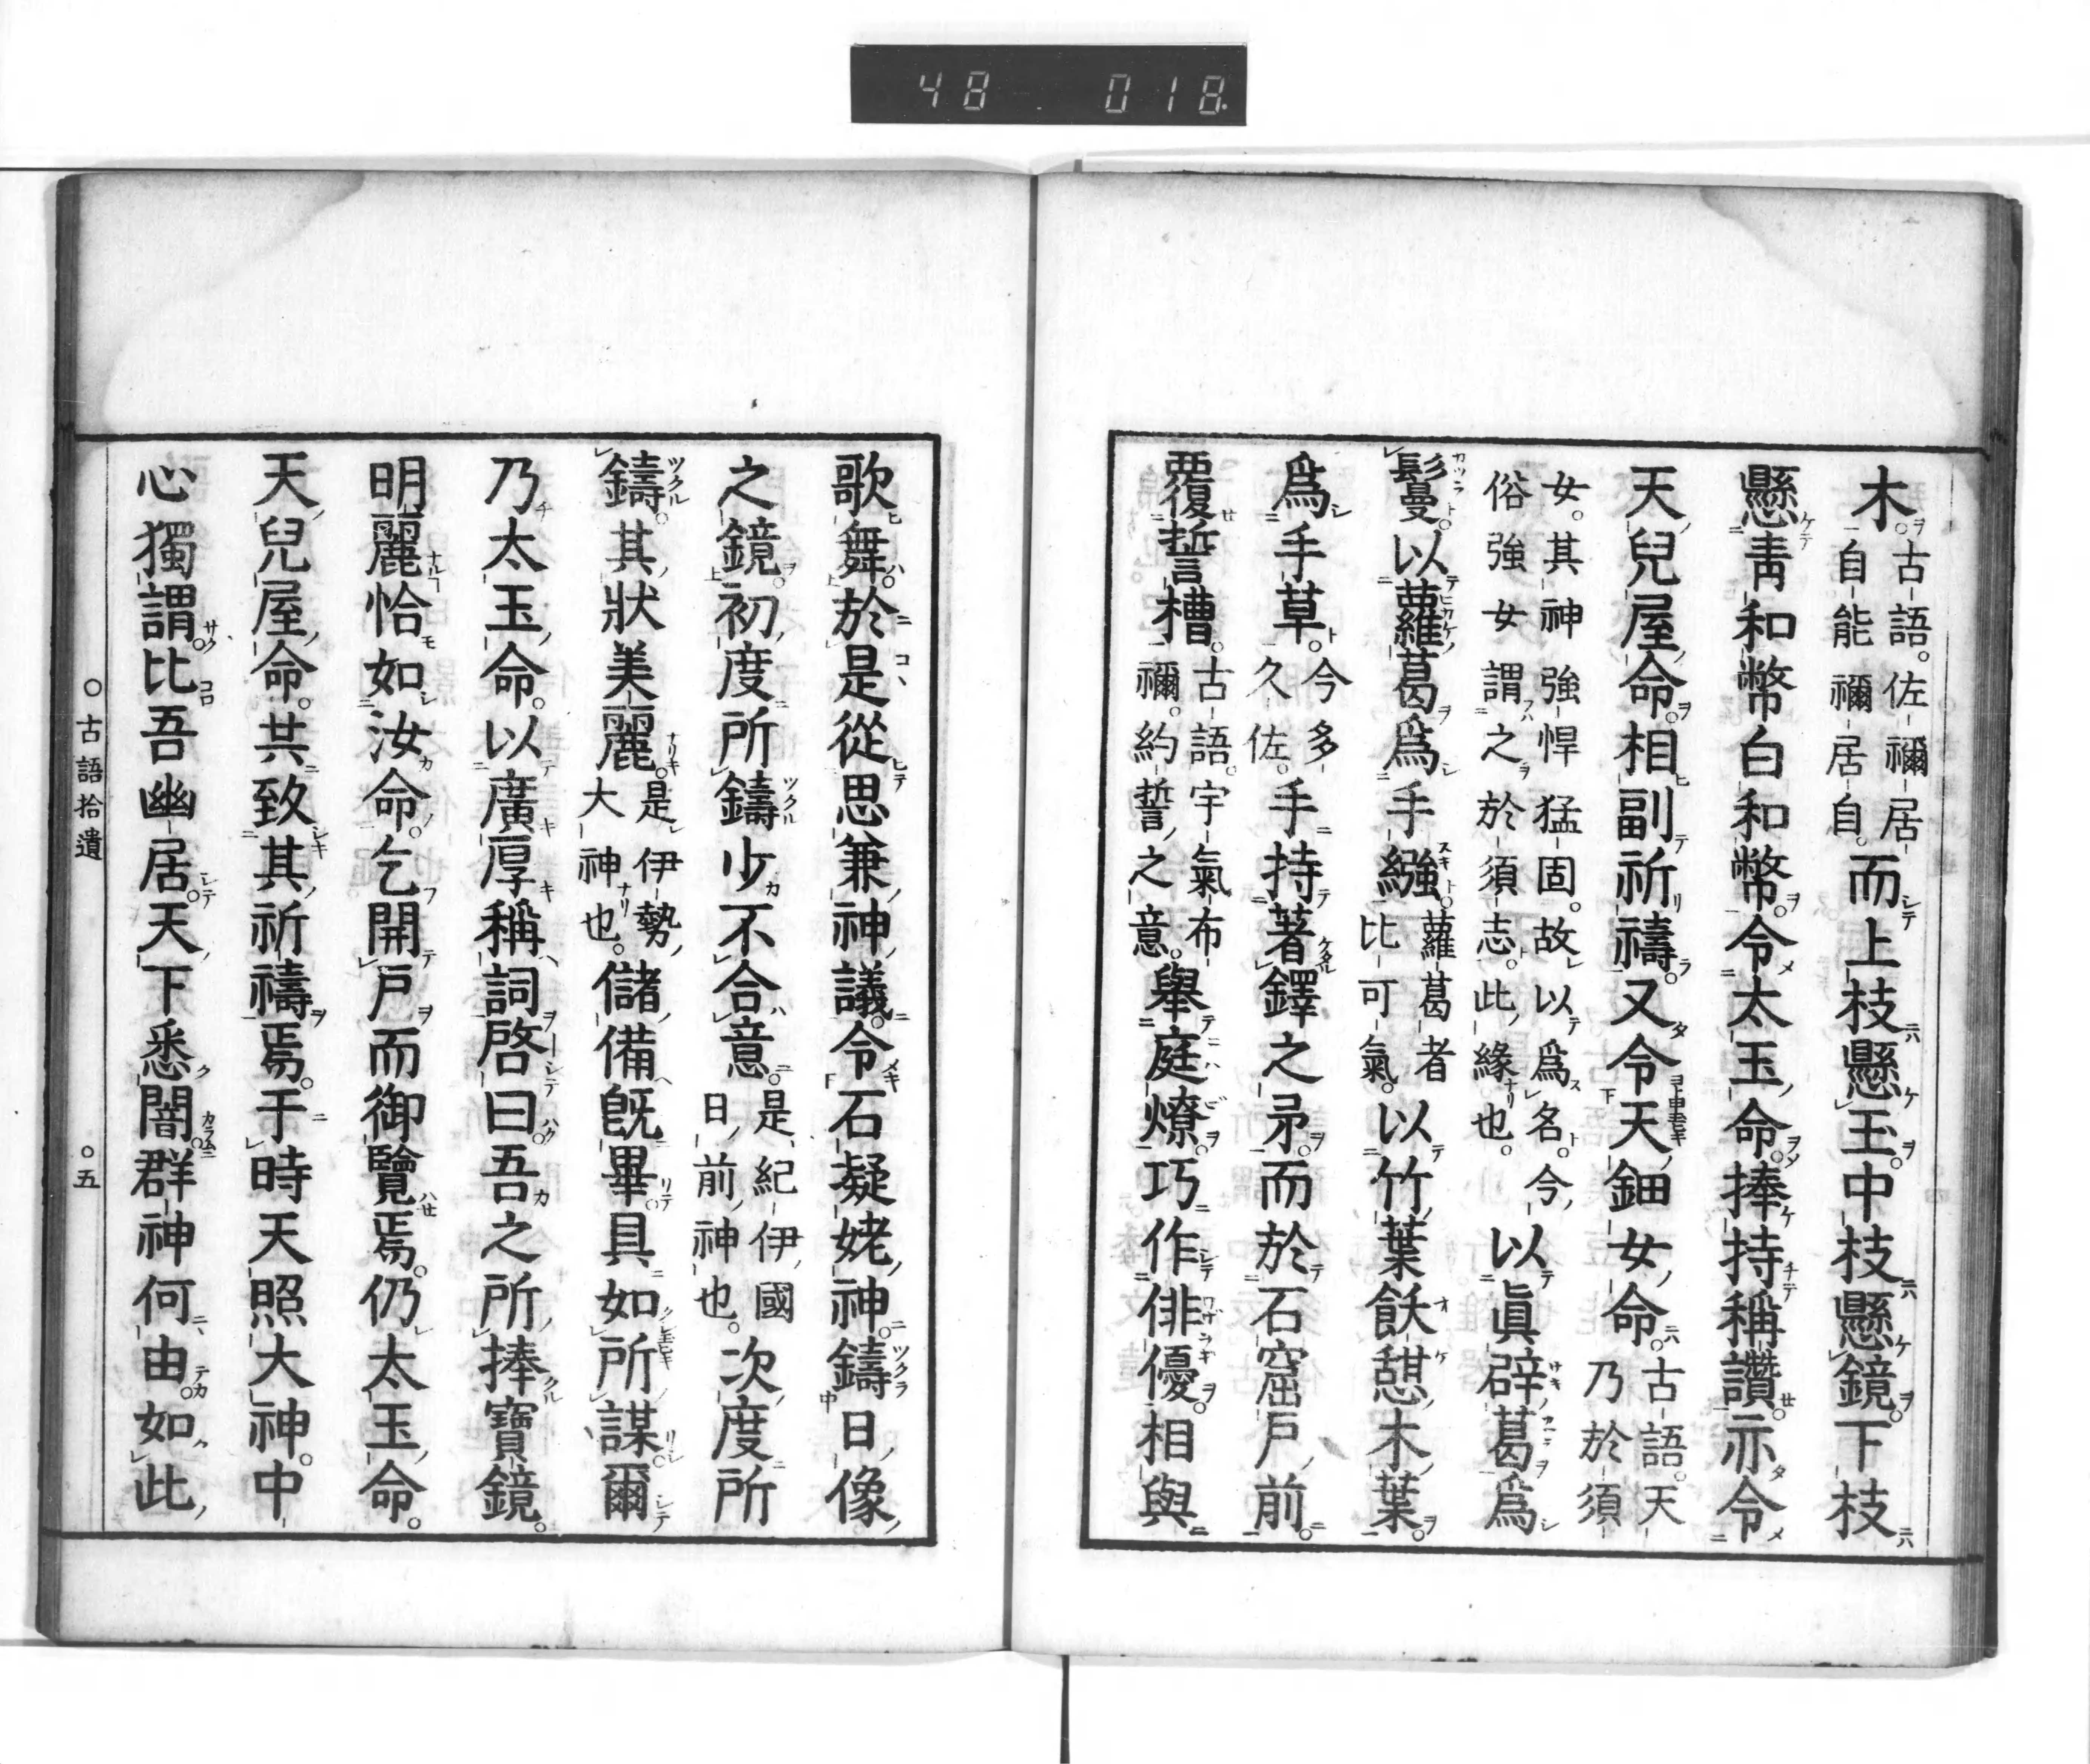 48 018
木古語佐禰居自能禰居自而上枝懸玉中枝懸鏡下枝
懸靑和幣白和幣令太玉命捧持稱讚亦令
天兒屋命相副祈禱又令天鈿女命古語天乃於須
女其神強悍猛固故以爲名今俗強女謂之於須志此緣也以眞辟葛爲
鬘以蘿葛爲手繦蘿葛者比可氣以竹葉飫憇木葉
爲手草今多久佐手持著鐸之矛而於石窟戶前
覆誓槽古語宇氣布禰約誓之意舉庭燎巧作俳優相與
歌舞於是從思兼神議令石凝姥神鑄日像
之鏡初度所鑄少不合意是紀伊國日前神也次度所
鑄其狀美麗是伊勢大神也儲備既畢具如所謀爾
乃太玉命以廣厚稱詞啓曰吾之所捧寶鏡
明麗恰如汝命乞開戶而御覽焉仍太玉命
天兒屋命共致其祈禱焉于時天照大神中
心獨謂比吾幽居天下悉闇群神何由如此
○古語拾遺 ○五